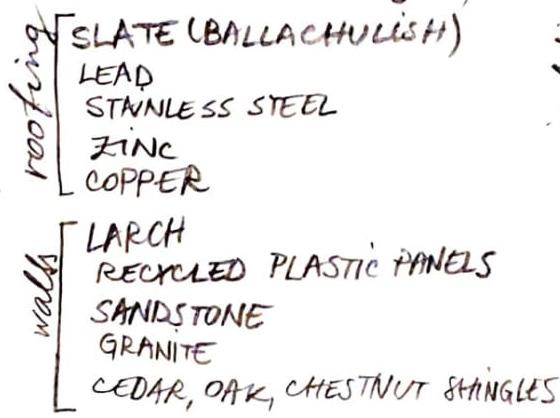 roofing
SLATE (BALLACHULISH)
LEAD
STAINLESS STEEL
ZINC
COPPER
walls
LARCH
RECYCLED PLASTIC PANELS
SANDSTONE
GRANITE
CEDAR, OAK, CHESTNUT SHINGLES